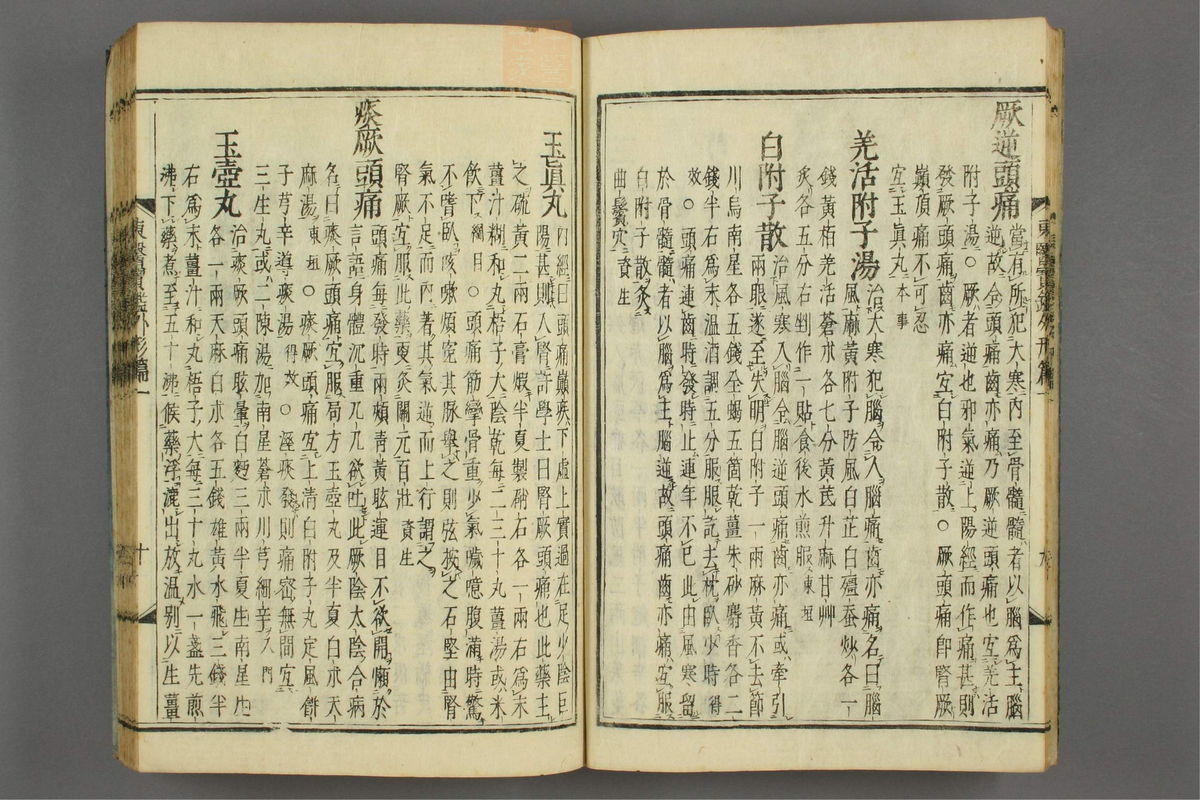 厥逆頭痛當有所犯大寒内至骨髓髓者以腦爲主腦
逆故令頭痛齒亦痛乃厥逆頭痛也宜羌活
附子湯○厥者逆也邪氣逆上陽經而作痛甚則
發厥頭痛齒亦痛宜白附子散○厥頭痛卽腎厥
巔頂痛不可忍
宜玉眞丸本事
羌活附子湯治大寒犯腦令人腦痛齒亦痛名曰腦
風麻黃附子防風白芷白殭蚕炒各一
錢黃栢羌活蒼朮各七分黃芪升麻甘艸
炙各五分右剉作一貼食後水煎服東垣
白附子散治風寒入腦令腦逆頭痛齒亦痛或牽引
兩眼遂至失明白附子一兩麻黃不去節
川烏南星各五錢全蝎五箇乾薑朱砂麝香各二
錢半右爲末温酒調五分服服訖去枕臥少時得
效○頭痛連齒時發時止連年不已此由風寒留
於骨髓髓者以腦爲主腦逆故頭痛齒亦痛宜服
白附子散灸
曲鬢穴資生
東醫寶鑑外形篇一
九
玉眞丸内經曰頭痛巔疾下虛上實過在足少陰巨
陽甚則入腎許學士曰腎厥頭痛也此藥主
之硫黃二兩石膏煆半夏製硝石各一兩右爲末
薑汁糊和丸梧子大陰乾每二三十丸薑湯或米
飲下綱目○頭痛筋攣骨重少氣噦噫腹滿時驚
不嗜臥咳嗽煩寃其脉擧之則弦按之石堅由腎
氣不足而内著其氣逆而上行謂之
腎厥宜服此藥更灸關元百壯資生
痰厥頭痛頭痛每發時兩頰靑黃眩運目不欲開懶於
言語身體沉重兀兀欲吐此厥陰太陰合病
名曰痰厥頭痛宜服局方玉壺丸及半夏白朮天
麻湯東垣○痰厥頭痛宜上清白附子丸定風餅
子芎辛導痰湯得效○溼痰發則痛密無間宜
三生丸或二陳湯加南星蒼朮川芎細辛入門
玉壺丸治痰厥頭痛眩暈白麪三兩半夏生南星生
各一兩天麻白朮各五錢雄黃水飛三錢半
右爲末薑汁和丸梧子大每三十丸水一盞先煎
沸下藥煮至五十沸候藥浮漉出放温别以生薑
東醫寶鑑外形篇一
十